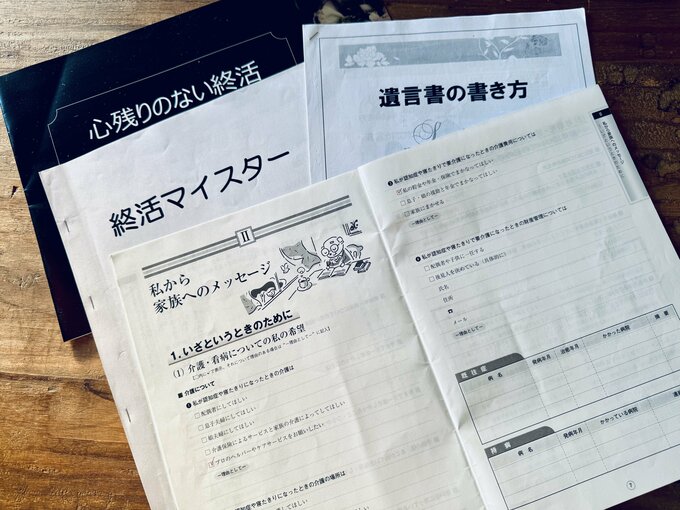 心残りのない終活
終活マイスター
遺言書の書き方
II
私から
家族へのメッセージ
1.いざというときのために
(1) 介護・看病についての私の希望
■ 介護について
❶私が認知症や寝たきりになったときの介護は
□配偶者にしてほしい
□息子夫婦にしてほしい
□娘夫婦にしてほしい
□介護保険によるサービスと家族の介護によってしてほしい
☑プロのヘルパーやケアサービスをお願いしたい
ー理由としてー
私が認知症や寝たきりになったときの介護の場所は
❸私が認知症や寝たきりで要介護になったときの介護費用については
☑私の貯金や年金・保険でまかなってほしい
□息子・娘の援助と年金でまかなってほしい
□家族にまかせる
ー理由としてー
私が認知症や寝たきりで要介護になったときの財産管理については
□配偶者や子供に一任する
□後見人を決めている(具体的に)
氏名
住所
☎
メール
ー理由としてー
既往症
病名
発病年月
治癒年月
かかった病院
摘要
持病
病名
発病年月
かかっている病院
7